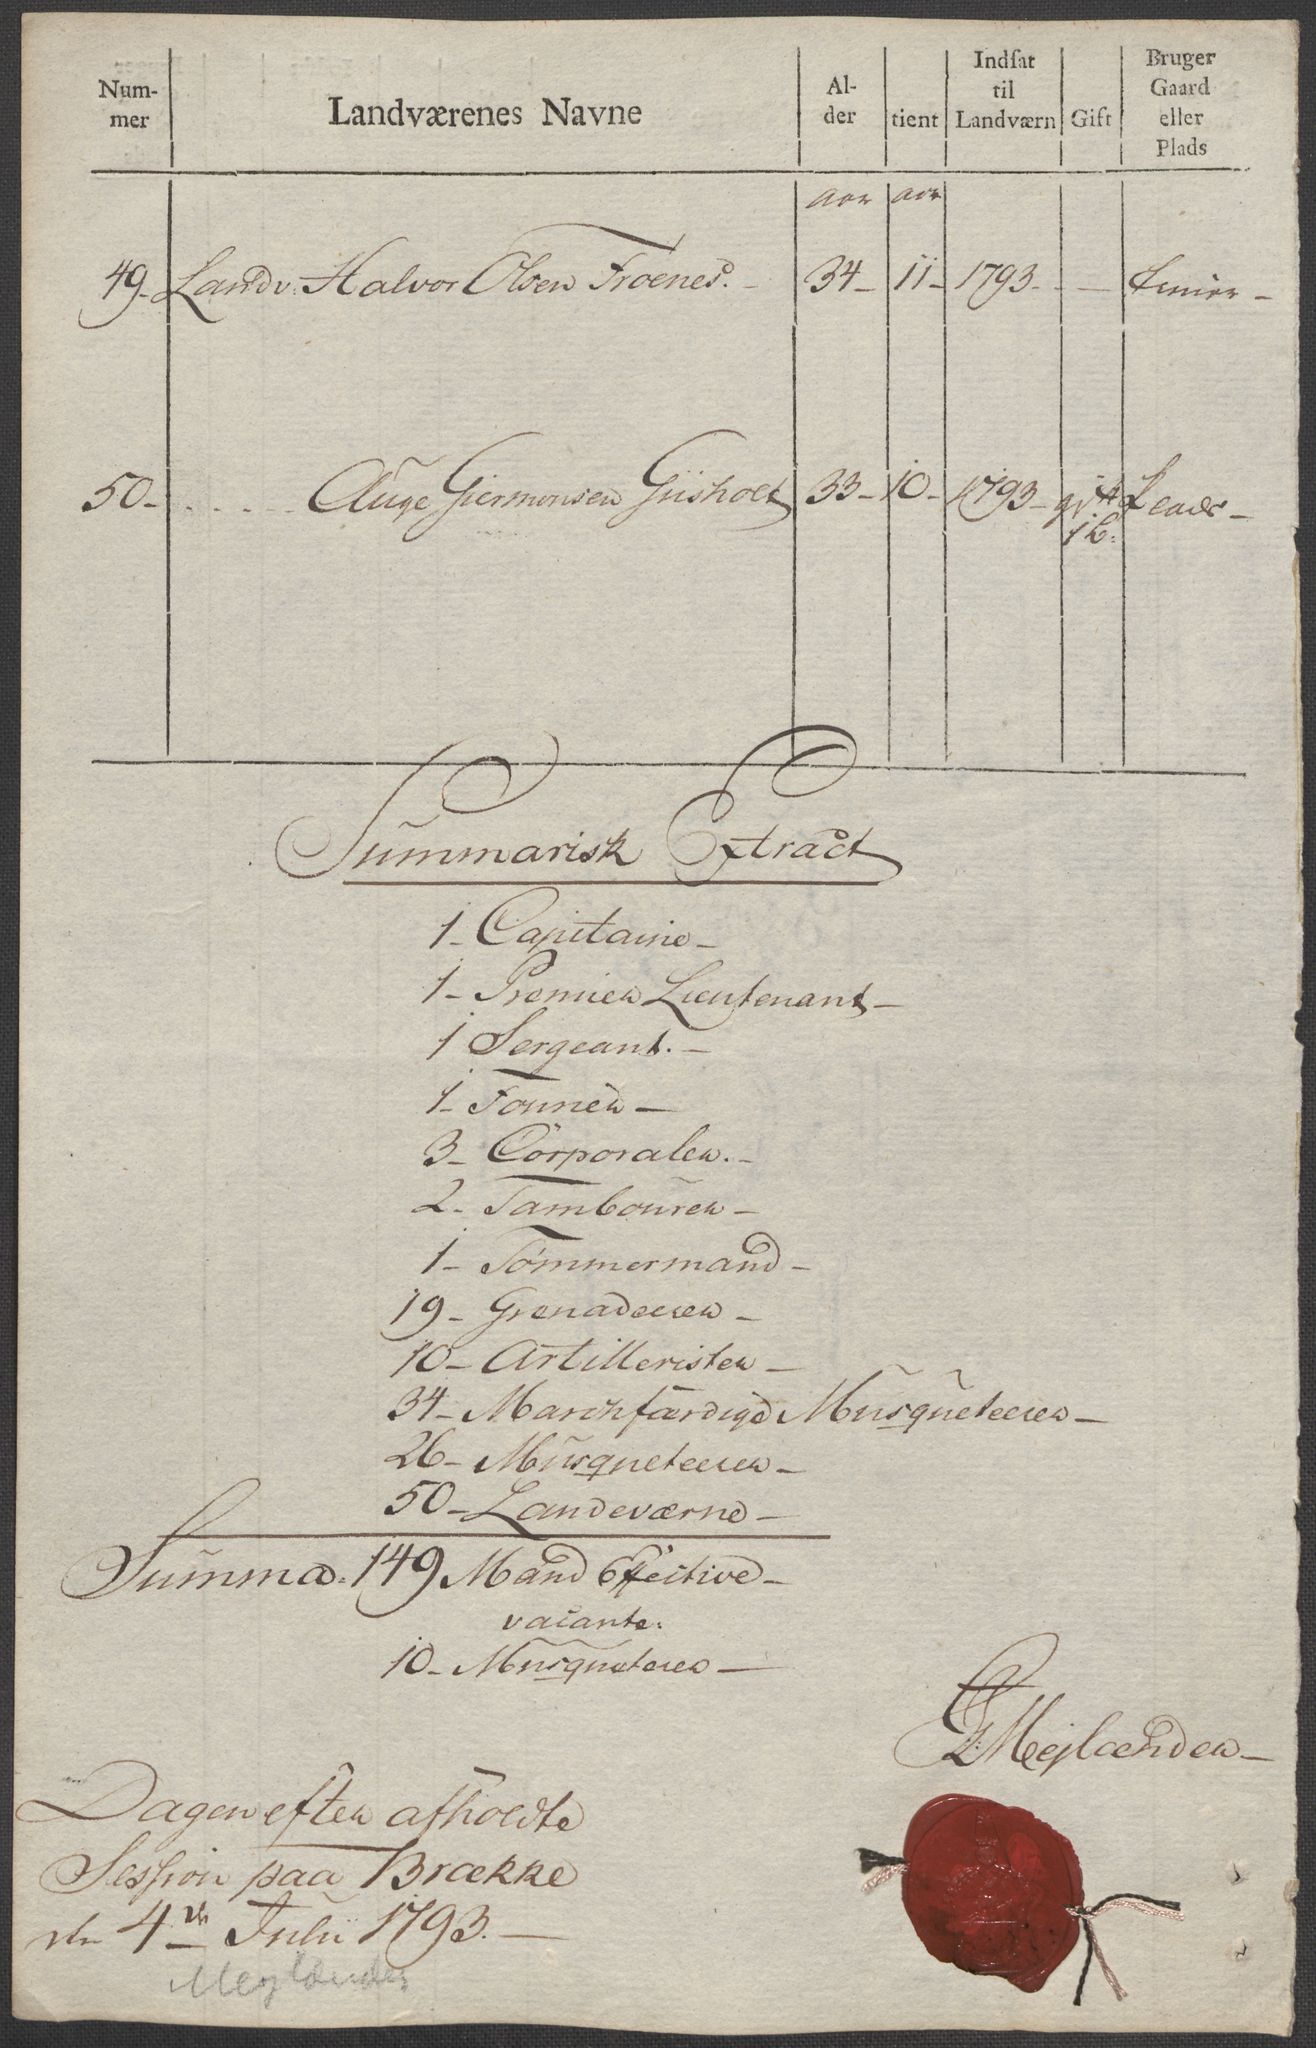 Num-
mer
Landværenes Navne
Al-
der
tient
Indsat
til
Landværn
Gift
Bruger
Gaard
eller
Plads
Aar Aar
49 - Landv: Halvor Olsen Froenes. - 34 - 11 - 1793 - -
50 - . . . . . Auge Giermonsen Giisholt 33 - 10 - 1793 - gift
1 b:
Summarisk Extract
1 - Capitaine -
1 - Premier Lieutenant -
1 Sergeant. -
1 - Fourier -
3 - Corporaler. -
2 - Tambourer -
1 - Tömmermand -
19 - Grenadeerer -
10 - Artillerister -
34 - Marchfærdige Musqueteerer -
26 - Musqueteerer -
50 - Landeværne -
Summa. 149 Mand Effective -
vacante.
10 - Musqueteerer -
Mejlænder -
Dagen efter afholdte
Session paa Brække
den 4de Julii 1793. -
Meglænder